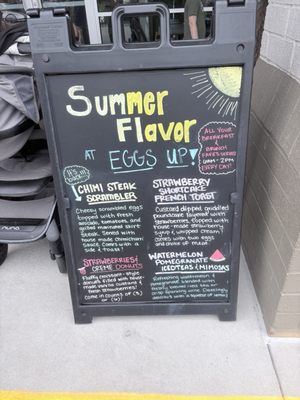 Summer
Flavor
AT EGGS UP!
ALL YOUR
BREAKFAST
& BRUNCH
FAVES
6AM - 2PM
EVERY DAY!
It's
back!
CHIMI STEAK
SCRAMBLER
Cheesy scrambled eggs
topped with fresh
avocado, tomatoes, and
grilled marinated skirt
steak. Served with
house made chimichurri
sauce. Comes with a
side & toast!
STRAWBERRY
SHORTCAKE
FRENCH TOAST
Custard dipped, griddled
poundcake layered with
strawberries, topped
with house-made strawberry
syrup & whipped cream.
Comes with two eggs
and choice of meat
STRAWBERRIES &
CRÈME DONUTS
Fluffy croissant-style
donuts filled with house-
made vanilla custard and
fresh strawberries!
Come in counts of (3)
or
WATERMELON
POMEGRANATE
ICED TEAS & MIMOSAS
Refreshing watermelon &
pomegranate blended with
freshly brewed iced tea or
crisp sparkling wine.
with a squeeze of lemon
nuna